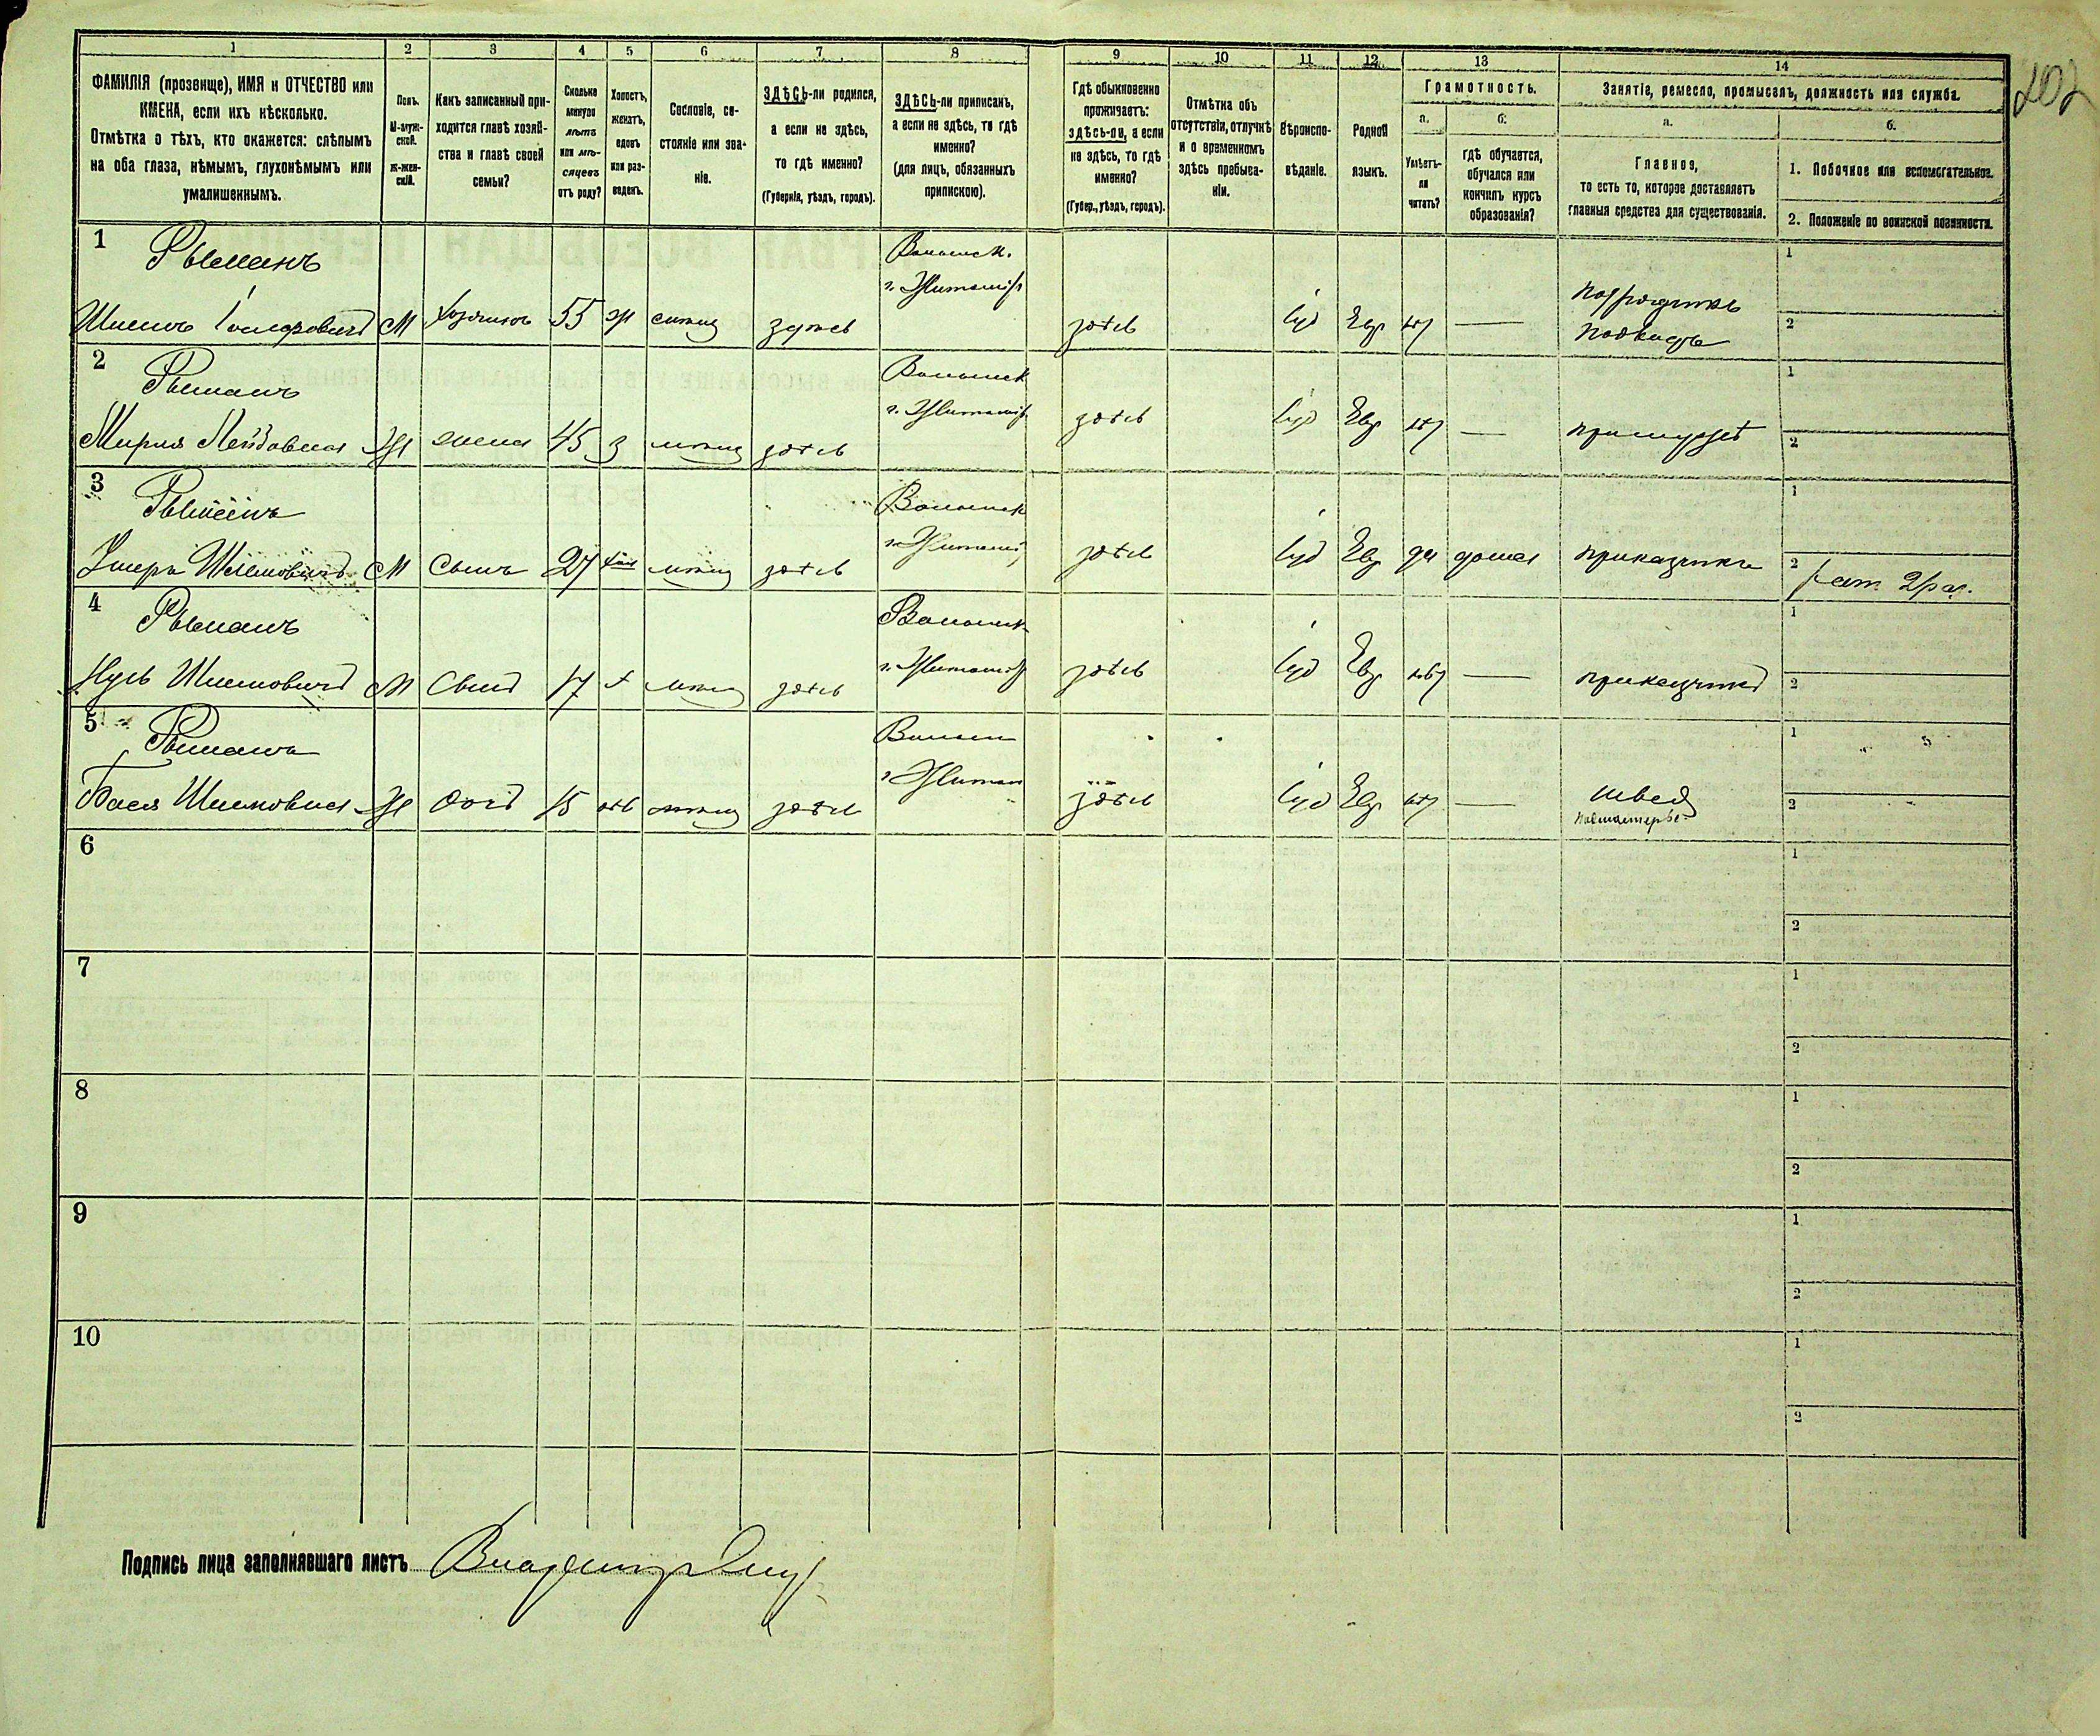 202
1 2 3 4 5 6 7 8 9 10 11 12 13 14
ФАМИЛІЯ (прозвище), ИМЯ и ОТЧЕСТВО или
ИМЕНА, если ихъ нѣсколько.
Отмѣтка о тѣхъ, кто окажется: слѣпымъ
на оба глаза, нѣмымъ, глухонѣмымъ или
умалишеннымъ.
Полъ.
М-муж-
ской.
Ж-жен-
скій.
Какъ записанный при-
ходится главѣ хозяй-
ства и главѣ своей
семьи?
Сколько
минуло
лѣтъ
или мѣ-
сяцевъ
отъ роду?
Холостъ,
женатъ,
вдовъ
или раз-
веденъ.
Сословіе, со-
стояніе или зва-
ніе.
ЗДѢСЬ-ли родился,
а если не здѣсь,
то гдѣ именно?
(Губернія, уѣздъ, городъ).
ЗДѢСЬ-ли приписанъ,
а если не здѣсь, то гдѣ
именно?
(для лицъ, обязанныхъ
припискою).
Гдѣ обыкновенно
проживаетъ:
здѣсь-ли, а если
не здѣсь, то гдѣ
именно?
(Губер., уѣздъ, городъ).
Отмѣтка объ
отсутствіи, отлучкѣ
и о временномъ
здѣсь пребыва-
ніи.
Вѣроиспо-
вѣданіе.
Родной
языкъ.
Грамотность.
а.
Умѣетъ-
ли
читать?
б.
гдѣ обучается,
обучался или
кончилъ курсъ
образованія?
Занятіе, ремесло, промыселъ, должность или служба.
а.
Главное,
то есть то, которое доставляетъ
главныя средства для существованія.
б.
1. Побочное или вспомогательное.
2. Положеніе по воинской повинности.
1 Рыманъ Волынск. 1
г. Житомір
М Хозяинъ 55 ж здѣсь здѣсь Іуд Евр нѣт — 2
2 Рыманъ Волынск 1
г. Житомір
Мирля Ж жена 45 З мѣщ здѣсь здѣсь Іуд Евр нѣт — 2
3 Рыманъ Волынск 1
г. Житомі
М Сынъ 27 мѣщ здѣсь здѣсь Іуд Евр да дома приказчикъ 2 рат. 2 раз.
4 Рыманъ Волынск 1
г. Житомір
Нусь Шимовичъ М Сынъ 17 х мѣщ здѣсь здѣсь Іуд Евр нѣт — приказчикъ 2
5 Рыманъ Волын 1
г. Житом
Бася Шимовна Ж дочь 15 мѣщ здѣсь здѣсь Іуд Евр нѣт — швея 2
6 1
2
7 1
2
8 1
2
9 1
2
10 1
2
Подпись лица заполнявшаго листъ Владимиръ